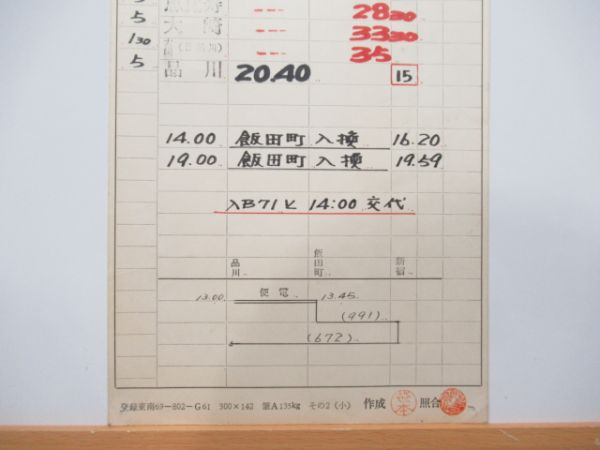 5 恵比寿 --- 28 30
5 大崎 --- 33 30
1 30 --- 35
5 品川 20.40 15
14.00 飯田町 入換 16.20
19.00 飯田町 入換 19.59
入B71と 14:00 交代
品川 飯田町 新宿
13.00 便電 13.45
(991)
(672)
登録東南69-802-G61 300×142 第A135kg その2(小) 作成 照合